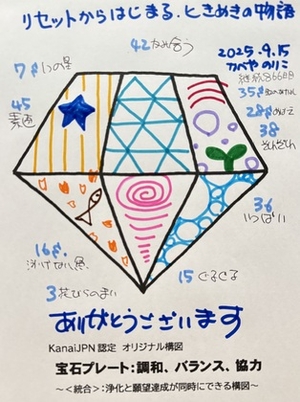 リセットからはじまる、ときめきの物語
42 なみ合う
2025.9.15
かべやのりこ
継続866日
7き.1つの星
35き
28き めばえ
38
ぞんぶん
45
素直
36
いっぱい
16き.
15 ぐるぐる
3 花びらのまい
ありがとうございます
KanaiJPN 認定 オリジナル構図
宝石プレート:調和、バランス、協力
〜＜統合＞:浄化と願望達成が同時にできる構図〜